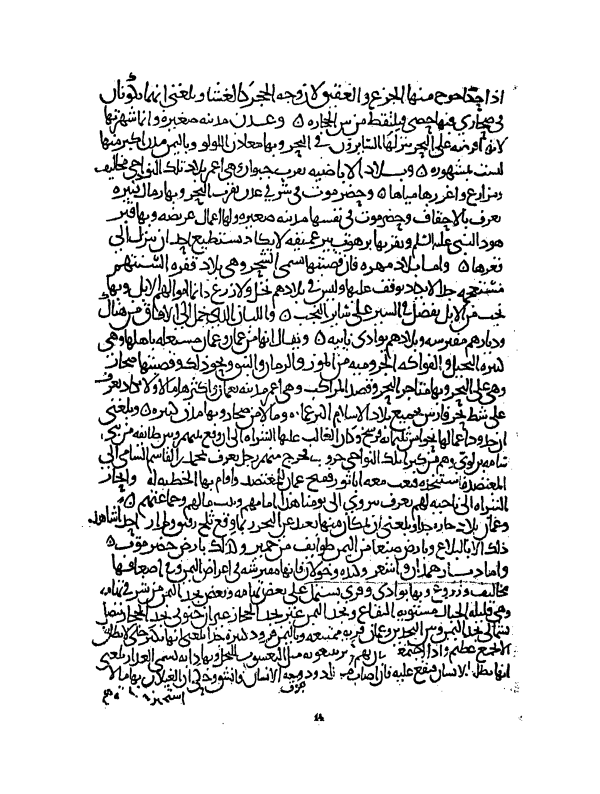 اذا حكا خرج منها الجزع والعقيق لان وجه الحجر كالغشا وبلغني انهما يكونان
في صحاري فيها حصى فيلتقط من بين الحجاره ٥ وعدن مدينه صغيره وانما شهرتها
لانها فرضه على البحر ينزلها السايرون في البحر وبها معادن اللولو وباليمن مدن اكبر منها
ليست بمشهوره ٥ وبلاد الاباضيه بقرب خيوان وهي اعمر بلاد تلك النواحي مخاليف
ومزارع واغزرها مياها ٥ وحضرموت في شرقي عدن بقرب البحر وبها رمال كثيره
تعرف بالاحقاف وحضرموت في نفسها مدينه صغيره ولها اعمال عريضه وبها قبر
هود النبي عليه السلم وبقربها برهوت بير عميقه لا يكاد يستطيع احد ان ينزل الى
قعرها ٥ واما بلاد مهره فان قصبتها تسمى الشحر وهي بلاد قفره السنتهم
مستعجمه جدا لا يكاد يوقف عليها وليس في بلادهم نخل ولا زرع وانما اموالهم الابل وبها
نجب من الابل تفضل في السير على ساير النجب ٥ واللبان الذي يحمل الى الافاق من هناك
وديارهم مفترشه وبلادهم بوادي ناييه ٥ ويقال انها من عمان وعمان مستقله باهلها وهي
كثيره النخيل والفواكه الجروميه من الموز والرمان والنبق ونحو ذلك وقصبتها صحار
وهي على البحر وبها متاجر البحر وقصد المراكب وهي اعمر مدينه بعمان واكثرها مالا ولا يكاد يعرف
على شط بحر فارس بجميع بلاد الاسلام اكثر عماره ومالا من صحار وبها مدن كثيره ٥ وبلغني
ان حدود اعمالها نحو من ثلثمايه فرسخ وكان الغالب عليها الشراه الى ان وقع بينهم وبين طايفه من بني
سامه بن لوي وهم من كبرا تلك النواحي حروب فخرج منهم رجل يعرف بمحمد بن القاسم السامي الى
المعتضد فاستنجده فبعث معه ابن ثور ففتح عمان للمعتضد واقام بها الخطبه له وانحاز
الشراه الى ناحيه لهم تعرف بنزوى الى يومنا هذا امامهم وبيت مالهم وجماعتهم ٥
وعمان بلاد حاره جدا وبلغني ان بمكان منها بعيد عن البحر ربما وقع ثلج رقيق ولم ار احدا شاهد
ذلك الا بالبلاغ وبارض صنعا من اليمن طوايف من حمير وكذلك بارض حضرموت ٥
واما ديار همدان واشعر وكنده وخولان فانها مفترشه في اعراض اليمن وفي اضعافها
مخاليف وزروع وبها بوادي وقرى تشتمل على بعض تهامه وبعض نجد اليمن من شرقي تهامه
وهي قليله الجبال مستويه البقاع ونجد اليمن غير نجد الحجاز غير ان جنوبي نجد الحجاز يتصل
بشمالي نجد اليمن وبين النجدين وعمان بريه ممتنعه وباليمن قرود كثيره جدا بلغني انها تكثر حتى لا تطاق
الا بجمع عظيم واذا اجتمعت كان لهم كبير يتبعونه مثل اليعسوب للنحل وبها دابه تسمى العدار بلغني
انها تطلب الانسان فتقع عليه فان اصابت تدود جوف الانسان وانشق ويحكى ان الغيلان بها ما لا
14